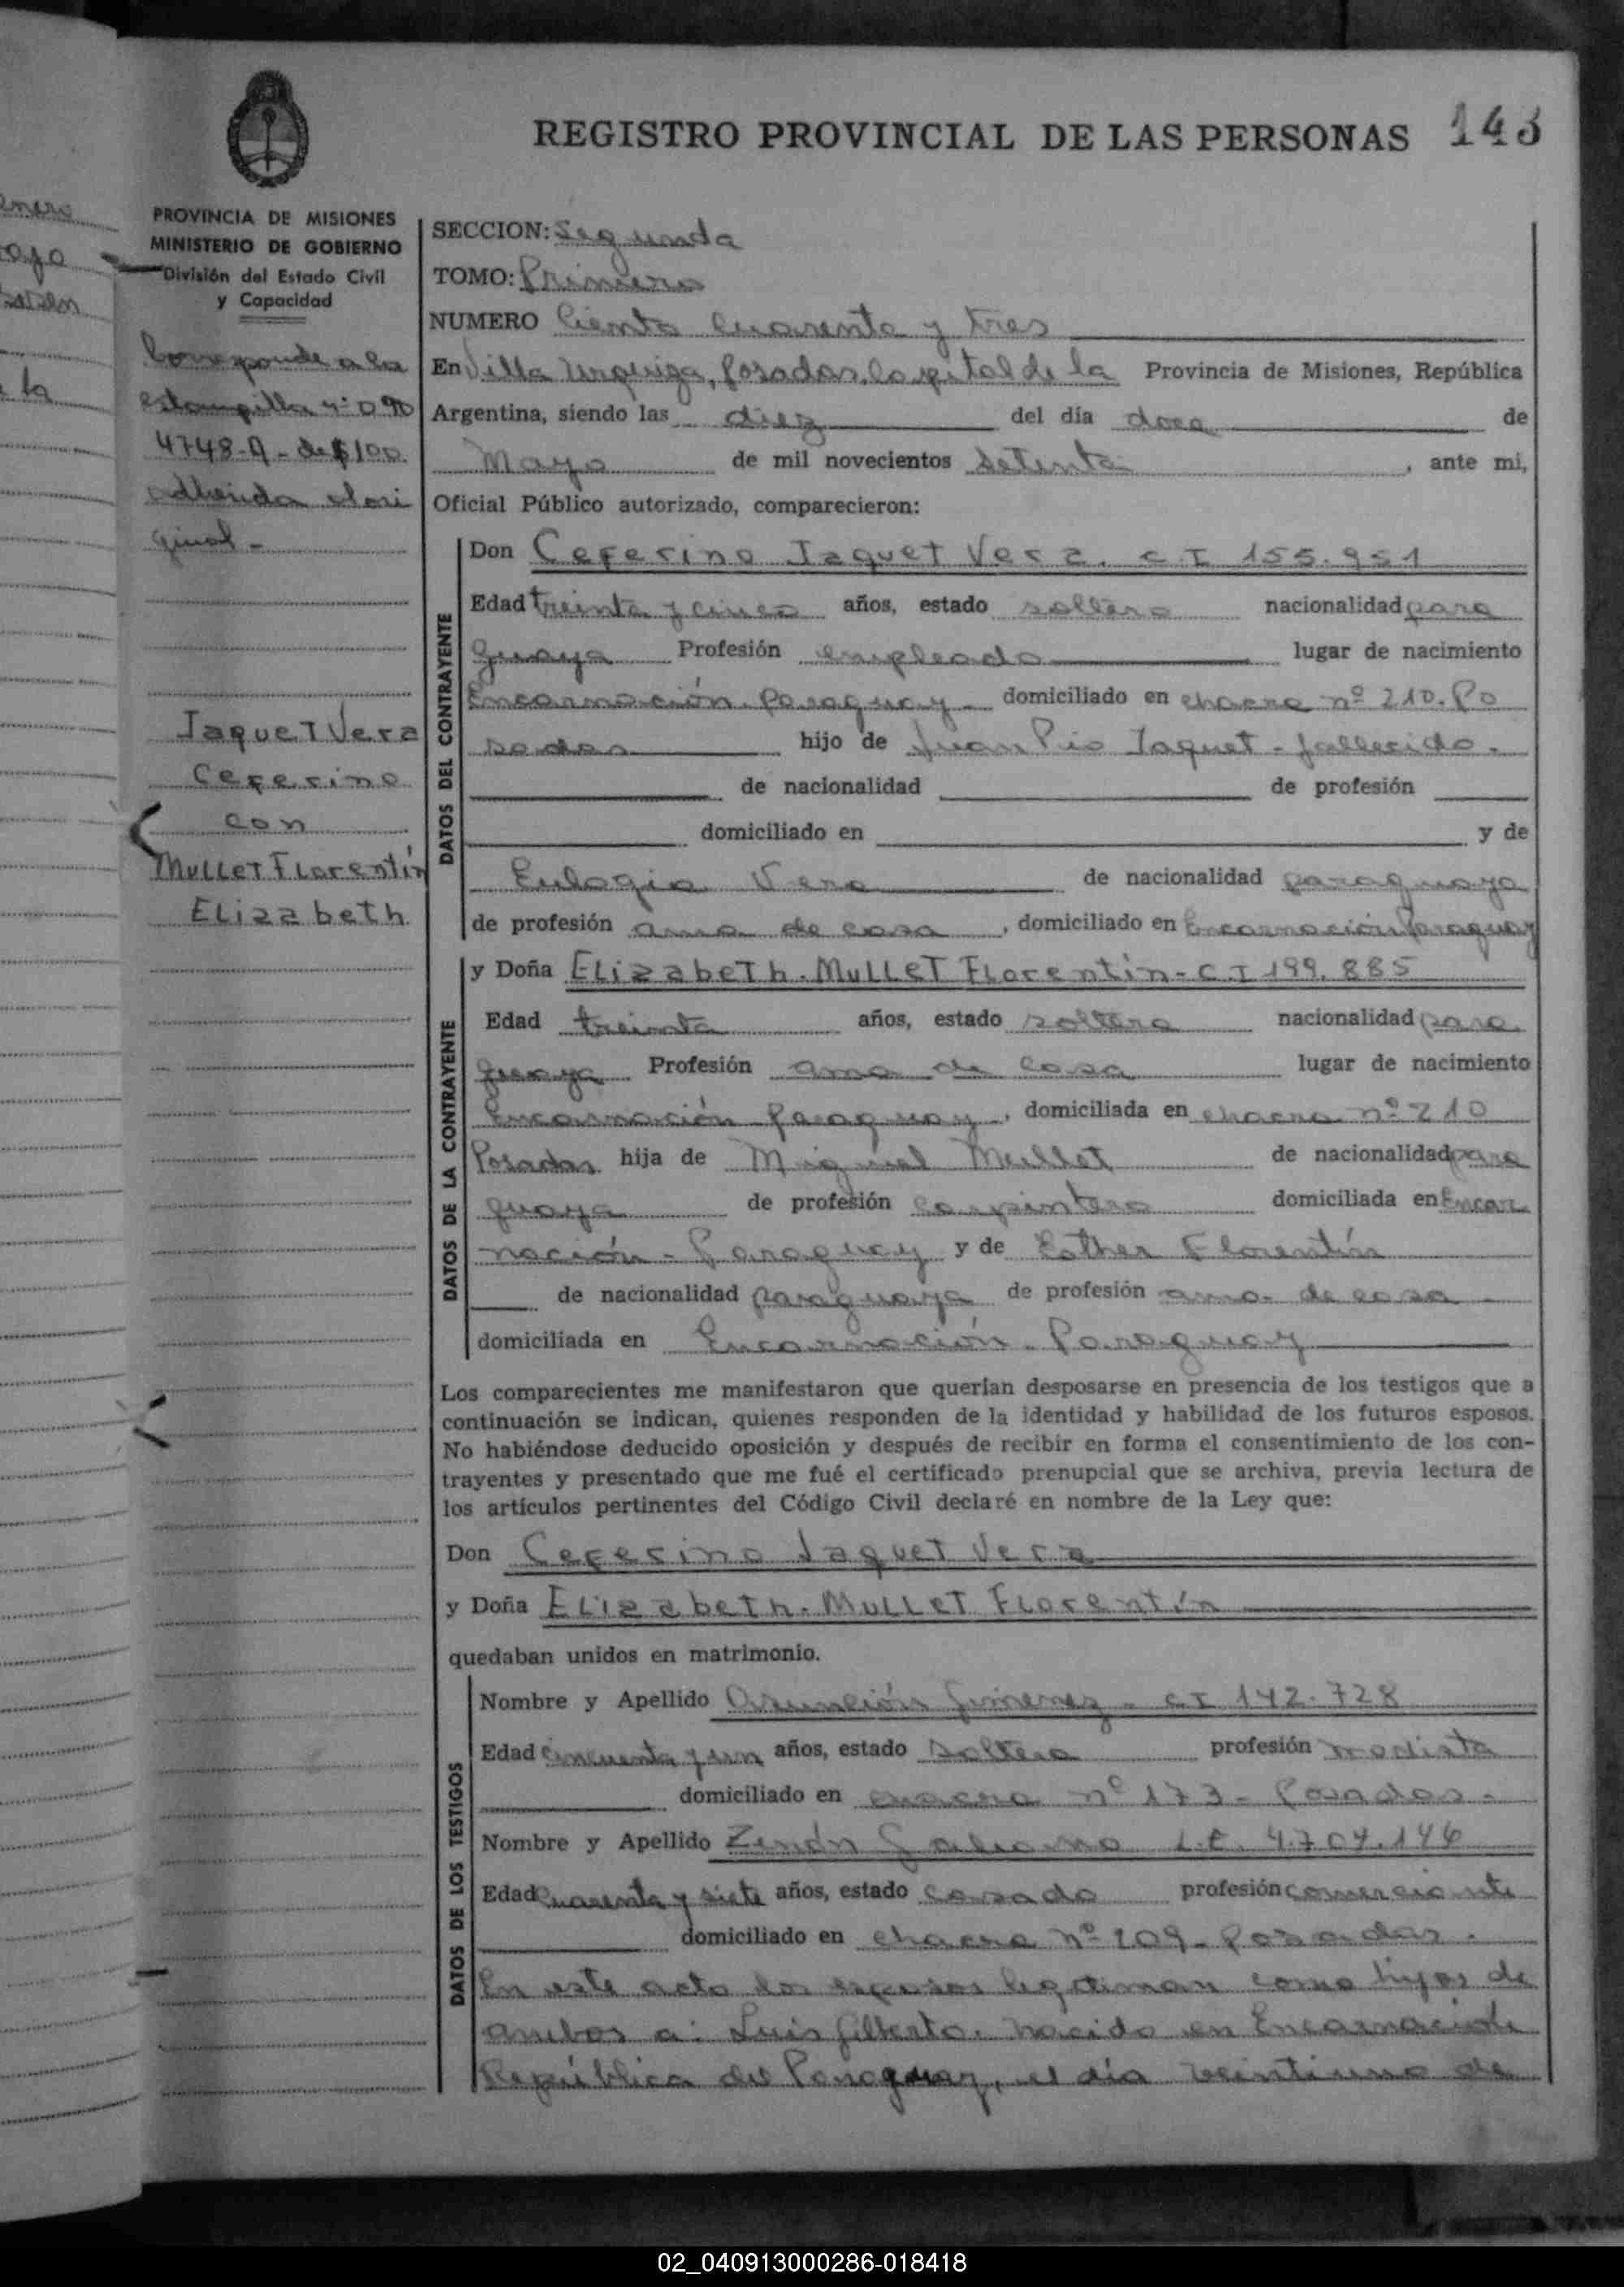 REGISTRO PROVINCIAL DE LAS PERSONAS 143
PROVINCIA DE MISIONES
MINISTERIO DE GOBIERNO
División del Estado Civil
y Capacidad
Corresponde a la
estampilla nº 090
4748-A - de $100
adherida al ori
ginal -
Jaquet Vera
Ceferino
con
Mullet Florentín
Elizabeth
SECCION: Segunda
TOMO: Primero
NUMERO Ciento cuarenta y tres
En Villa Urquiza, Posadas, Capital de la Provincia de Misiones, República
Argentina, siendo las diez del día doce de
Mayo de mil novecientos setenta, ante mi,
Oficial Público autorizado, comparecieron:
DATOS DEL CONTRAYENTE
Don Ceferino Jaquet Vera. C.I 155.951
Edad treinta y cinco años, estado soltero nacionalidad para
guaya Profesión empleado lugar de nacimiento
Encarnación Paraguay - domiciliado en chacra nº 210. Po
sadas hijo de Juan Pio Jaquet - fallecido.
de nacionalidad de profesión
domiciliado en y de
Eulogia Vera de nacionalidad paraguaya
de profesión ama de casa, domiciliado en Encarnación Paraguay
DATOS DE LA CONTRAYENTE
y Doña Elizabeth. Mullet Florentín - C.I 199.885
Edad treinta años, estado soltera nacionalidad para
guaya Profesión ama de casa lugar de nacimiento
Encarnación Paraguay, domiciliada en chacra nº 210
Posadas hija de Miguel Mullet de nacionalidad para
guaya de profesión carpintero domiciliada en Encar
nación - Paraguay y de Esther Florentín
de nacionalidad paraguaya de profesión ama de casa -
domiciliada en Encarnación - Paraguay
Los comparecientes me manifestaron que querían desposarse en presencia de los testigos que a
continuación se indican, quienes responden de la identidad y habilidad de los futuros esposos.
No habiéndose deducido oposición y después de recibir en forma el consentimiento de los con-
trayentes y presentado que me fué el certificado prenupcial que se archiva, previa lectura de
los artículos pertinentes del Código Civil declaré en nombre de la Ley que:
Don Ceferino Jaquet Vera
y Doña Elizabeth. Mullet Florentín
quedaban unidos en matrimonio.
DATOS DE LOS TESTIGOS
Nombre y Apellido Asunción Gimenez - C.I 142.728
Edad cincuenta y un años, estado soltera profesión modista
domiciliado en chacra nº 173 - Posadas -
Nombre y Apellido Zenón Galeano L.E. 4.704.146
Edad cuarenta y siete años, estado casado profesión comerciante
domiciliado en chacra nº 209 - Posadas.
En este acto los esposos legitiman como hijos de
ambos a: Luis Gilberto, nacido en Encarnación
República del Paraguay, el día veintiuno de
02_040913000286-018418